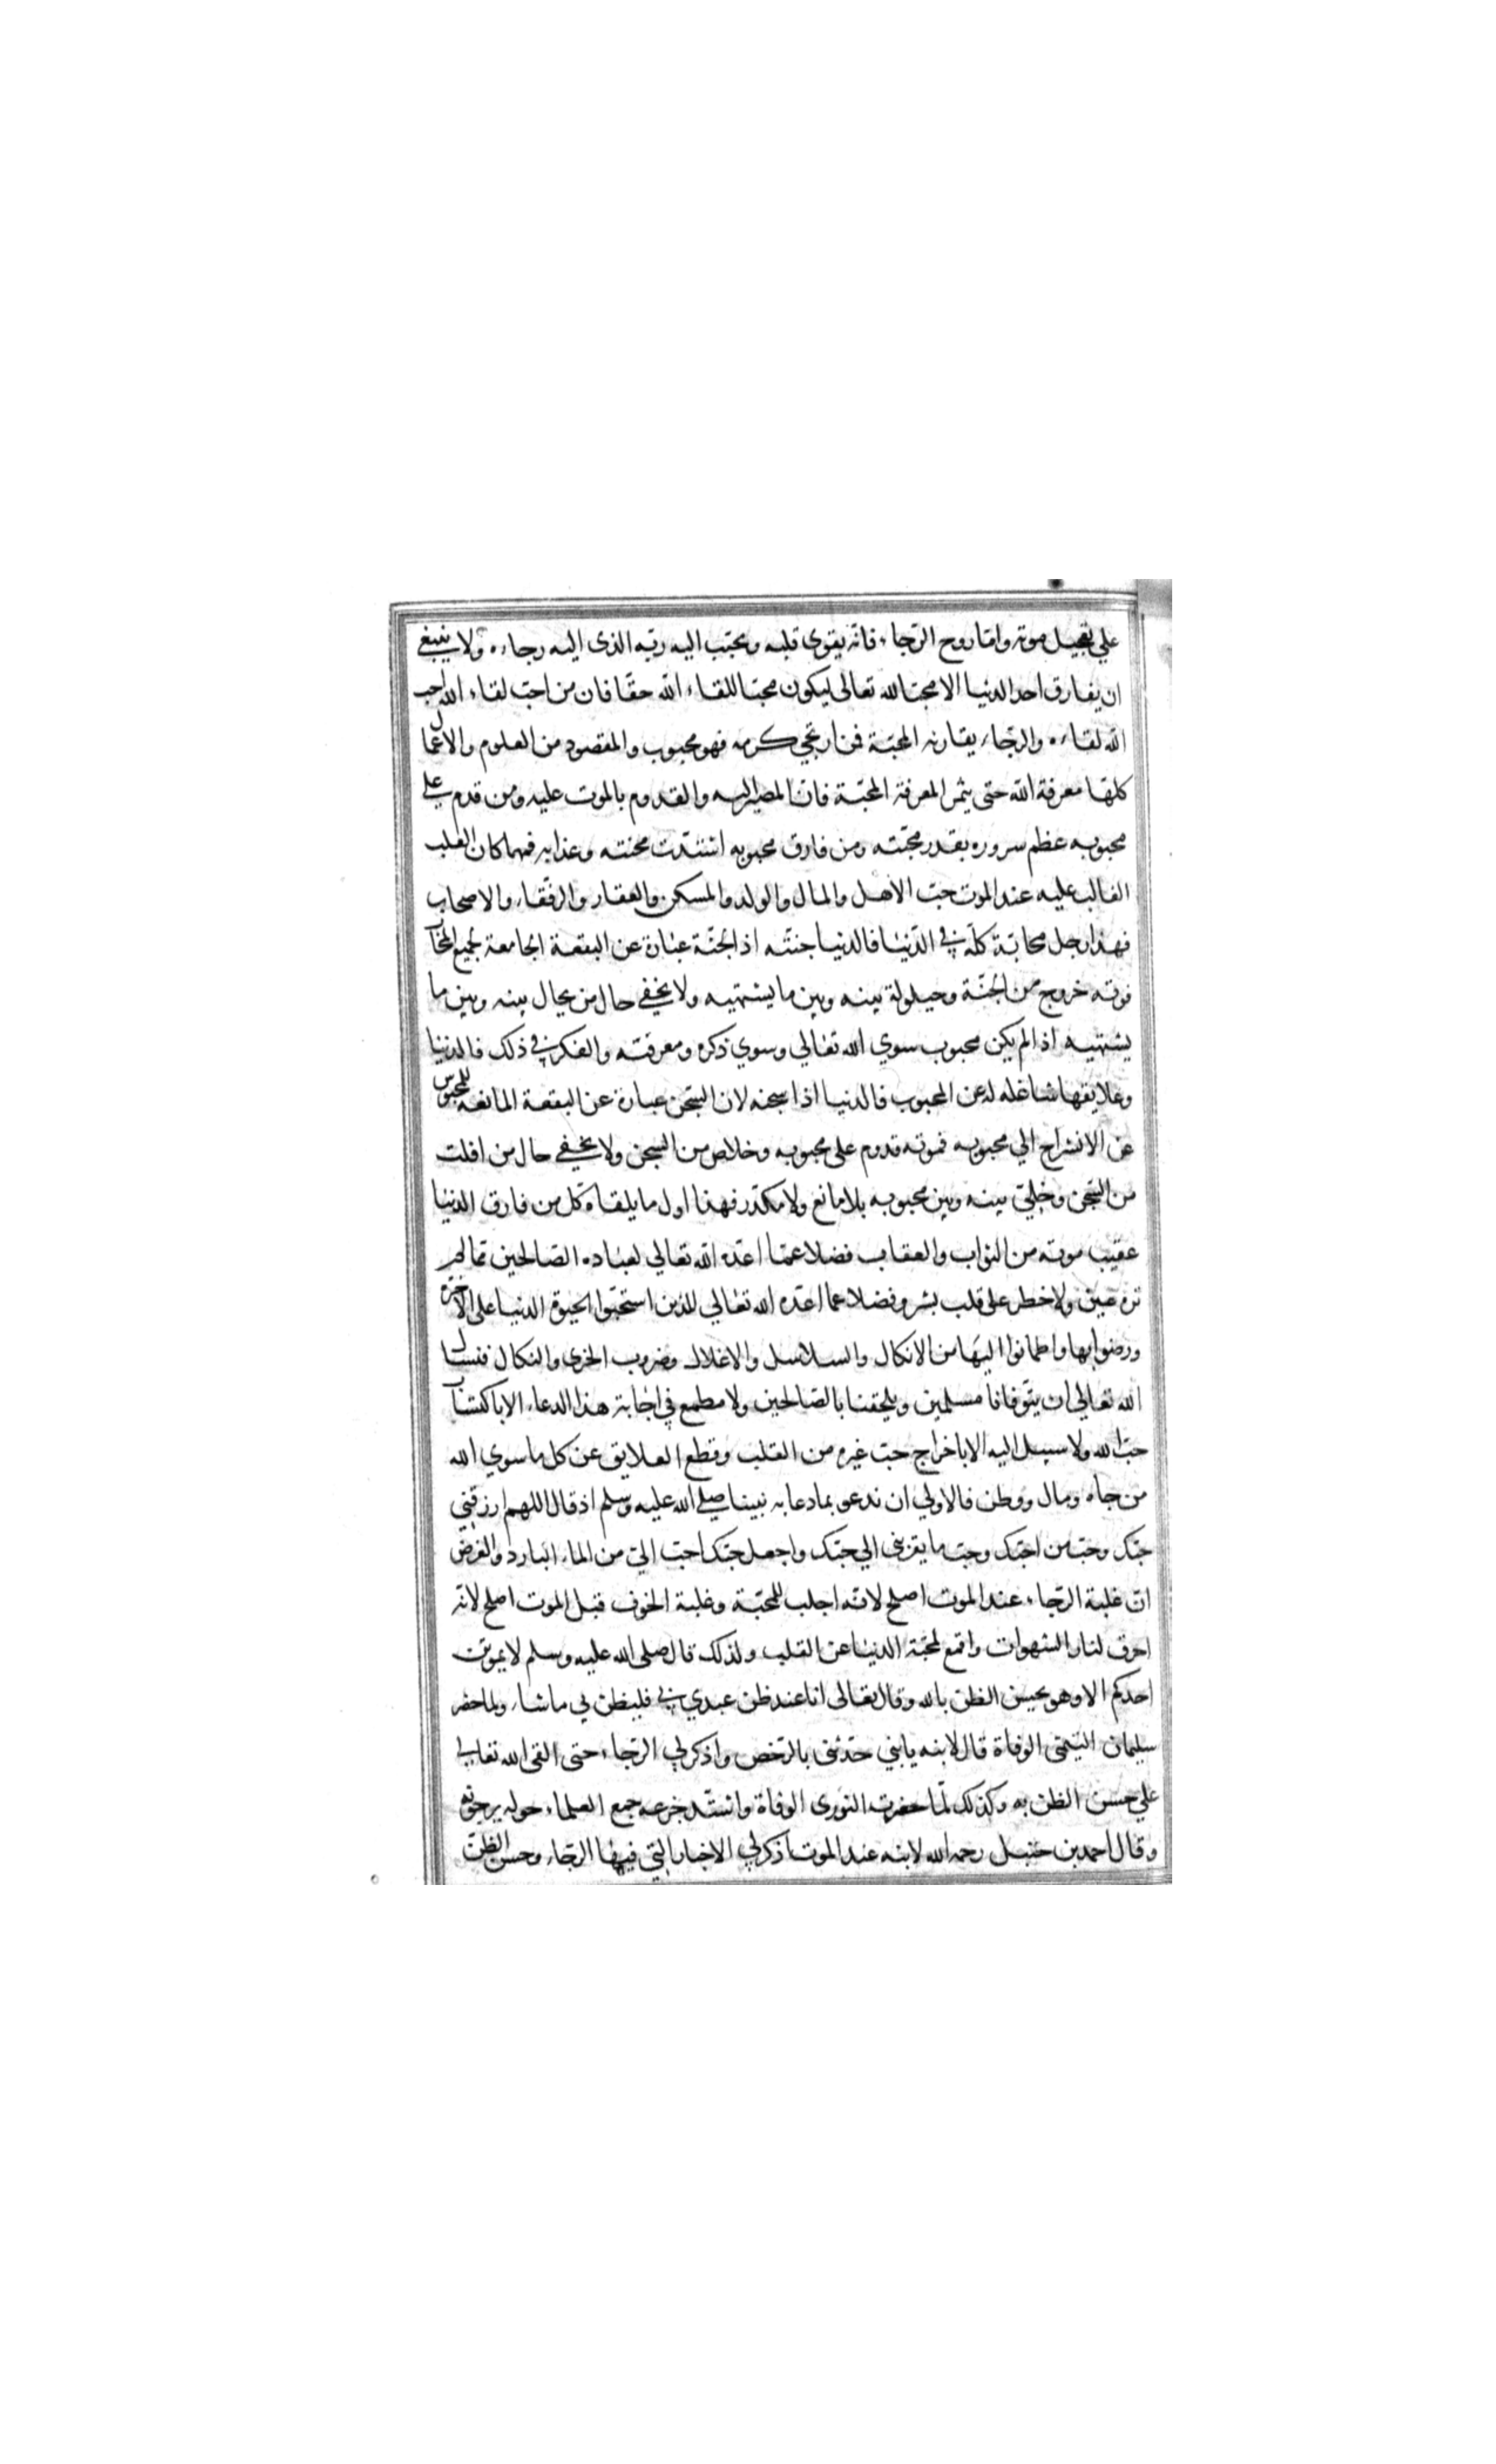 علي تعجيل موته واما روح الرّجاء فانّه يقوى قلبه ويحبّب اليه ربّه الذى اليه رجاءه ولا ينبغي
ان يفارق احد الدنيا الا محبّا لله تعالى ليكون محبّا للقاء الله حقّا فان من احبّ لقاء الله احب
الله لقاءه والرّجاء يقارنه المحبّة فمن ارتجي كرمه فهو محبوب والمقصود من العلوم والاعمال
كلها معرفة الله حتى يثمر المعرفة المحبّة فانّ المصير اليه والقدوم بالموت عليه ومن قدم علي
محبوبه عظم سروره بقدر محبّته ومن فارق محبوبه اشتدّت محنته وعذابه فمهما كان القلب
الغالب عليه عند الموت حبّ الاهل والمال والولد والمسكن والعقار والرفقاء والاصحاب
فهذا رجل محابّة كلّه في الدّنيا فالدنيا جنّته اذ الجنّة عبارة عن البقعة الجامعة لجميع المحاب
فموته خروج من الجنّة وحيلولة بينه وبين ما يشتهيه ولا يخفي حال من يحال بينه وبين ما
يشتهيه اذا لم يكن محبوب سوي الله تعالي وسوي ذكره ومعرفته والفكر في ذلك فالدنيا
وعلايقها شاغله له عن المحبوب فالدنيا اذا سجنه لان السّجن عبارة عن البقعة المانعه للمحبوس
عن الانشراح الي محبوبه فموته قدوم على محبوبه وخلاص من السجن ولا يخفي حال من افلت
من السّجن وخلّي بينه وبين محبوبه بلا مانع ولا مكدّر فهذا اول ما يلقاه كل من فارق الدنيا
عقيب موته من الثواب والعقاب فضلا عمّا اعدّه الله تعالي لعباده الصّالحين ممّا لم
تره عين ولا خطر على قلب بشر وفضلا عما اعدّه الله تعالي للذين استحبّوا الحيوة الدنيا على الاخرة
ورضوا بها واطمانوا اليها من الانكال والسلاسل والاغلال وضروب الخزى والنكال فنسال
الله تعالي ان يتوفانا مسلمين ويلحقنا بالصّالحين ولا مطمع في اجابة هذا الدعاء الا باكتساب
حبّ الله ولا سبيل اليه الا باخراج حبّ غيره من القلب وقطع العلايق عن كل ما سوي الله
من جاه ومال ووطن فالاولي ان ندعو بما دعا به نبينا صلي الله عليه وسلم اذ قال اللهم ارزقني
حبّك وحبّ من احبّك وحبّ ما يقربني الي حبّك واجعل حبّك احبّ اليّ من الماء البارد والغرض
انّ غلبة الرّجاء عند الموت اصلح لانّه اجلب للمحبّة وغلبة الخوف قبل الموت اصلح لانّه
احرق لنار الشهوات واقمع لمحبّة الدنيا عن القلب ولذلك قال صلى الله عليه وسلم لا يموتن
احدكم الا وهو يحسن الظن بالله وقال تعالى انا عند ظن عبدي بي فليظن بي ما شاء ولما حضر
سليمان التيمى الوفاة قال لابنه يا بني حدّثنى بالرّخص واذكر لي الرّجاء حتى القى الله تعالي
علي حسن الظن به وكذلك لمّا حضرت الثورى الوفاة واشتد جزعه جمع العلماء حوله يرجونه
وقال احمد بن حنبل رحمه الله لابنه عند الموت اذكر لي الاخبار التي فيها الرّجاء وحسن الظن